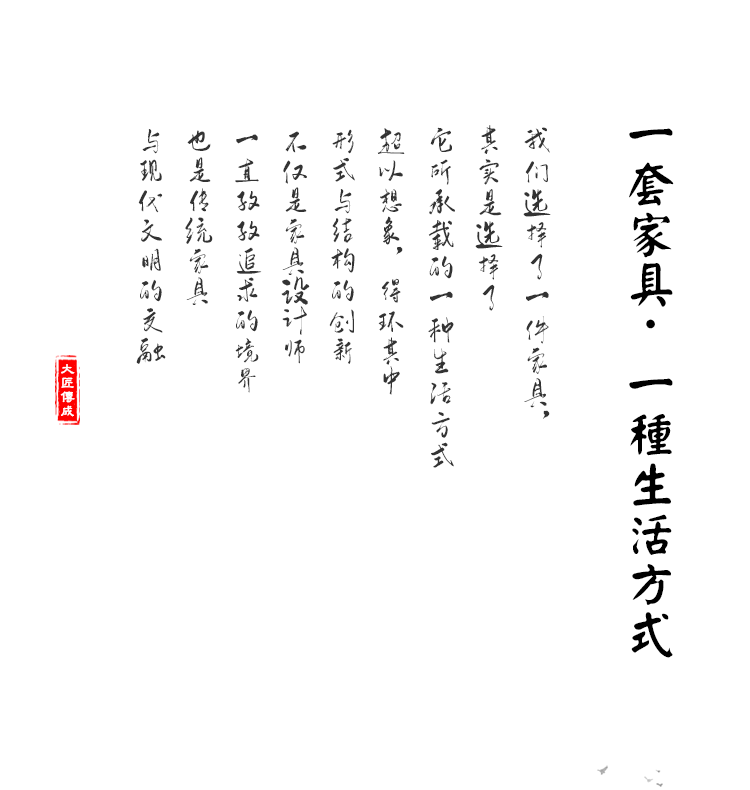 一套家具·一種生活方式
我们选择了一件家具，
其实是选择了
它所承载的一种生活方式
超以想象，得环其中
形式与结构的创新
不仅是家具设计师
一直孜孜追求的境界
也是传统家具
与现代文明的交融
大匠傳成